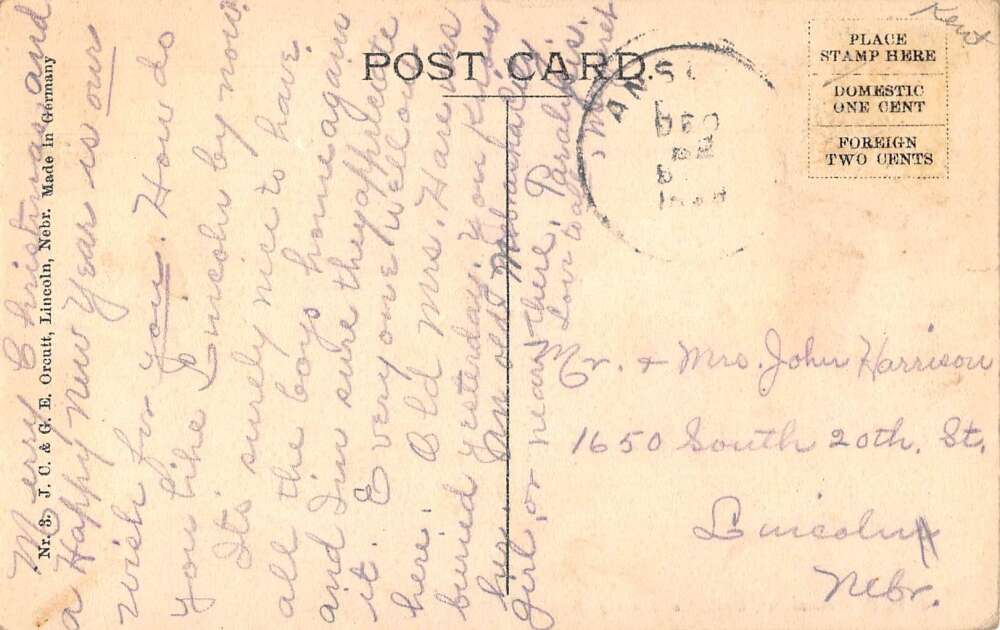 POST CARD.
PLACE
STAMP HERE
DOMESTIC
ONE CENT
FOREIGN
TWO CENTS
Kent
DEC
Nr. 3. J. C. & G. E. Orcutt, Lincoln, Nebr. Made in Germany
Merry Christmas and
a Happy New Year is our
wish for you. How do
you like Lincoln by now.
Its surely nice to have
all the boys home again
and Im sure they appreciate
it. Everyone well out
here. Old Mrs. Hare was
buried yesterday. You know
her. An old
girl, or near there. Paralysis.
Love to all,
Mr. & Mrs. John Harrison
1650 South 20th. St.
Lincoln
Nebr.